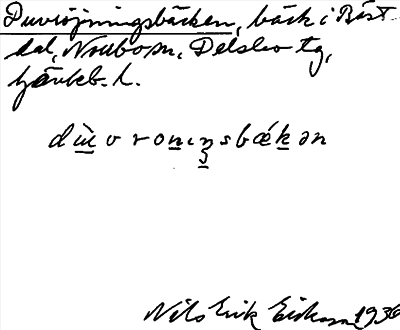 Duvröjningsbäcken, bäck i Bäst-
dal, Norrbo sn, Delsbo tg,
Gävleb. l.
dɯ̀v rönıŋsbækən
Nils Erik Eriksson 1936